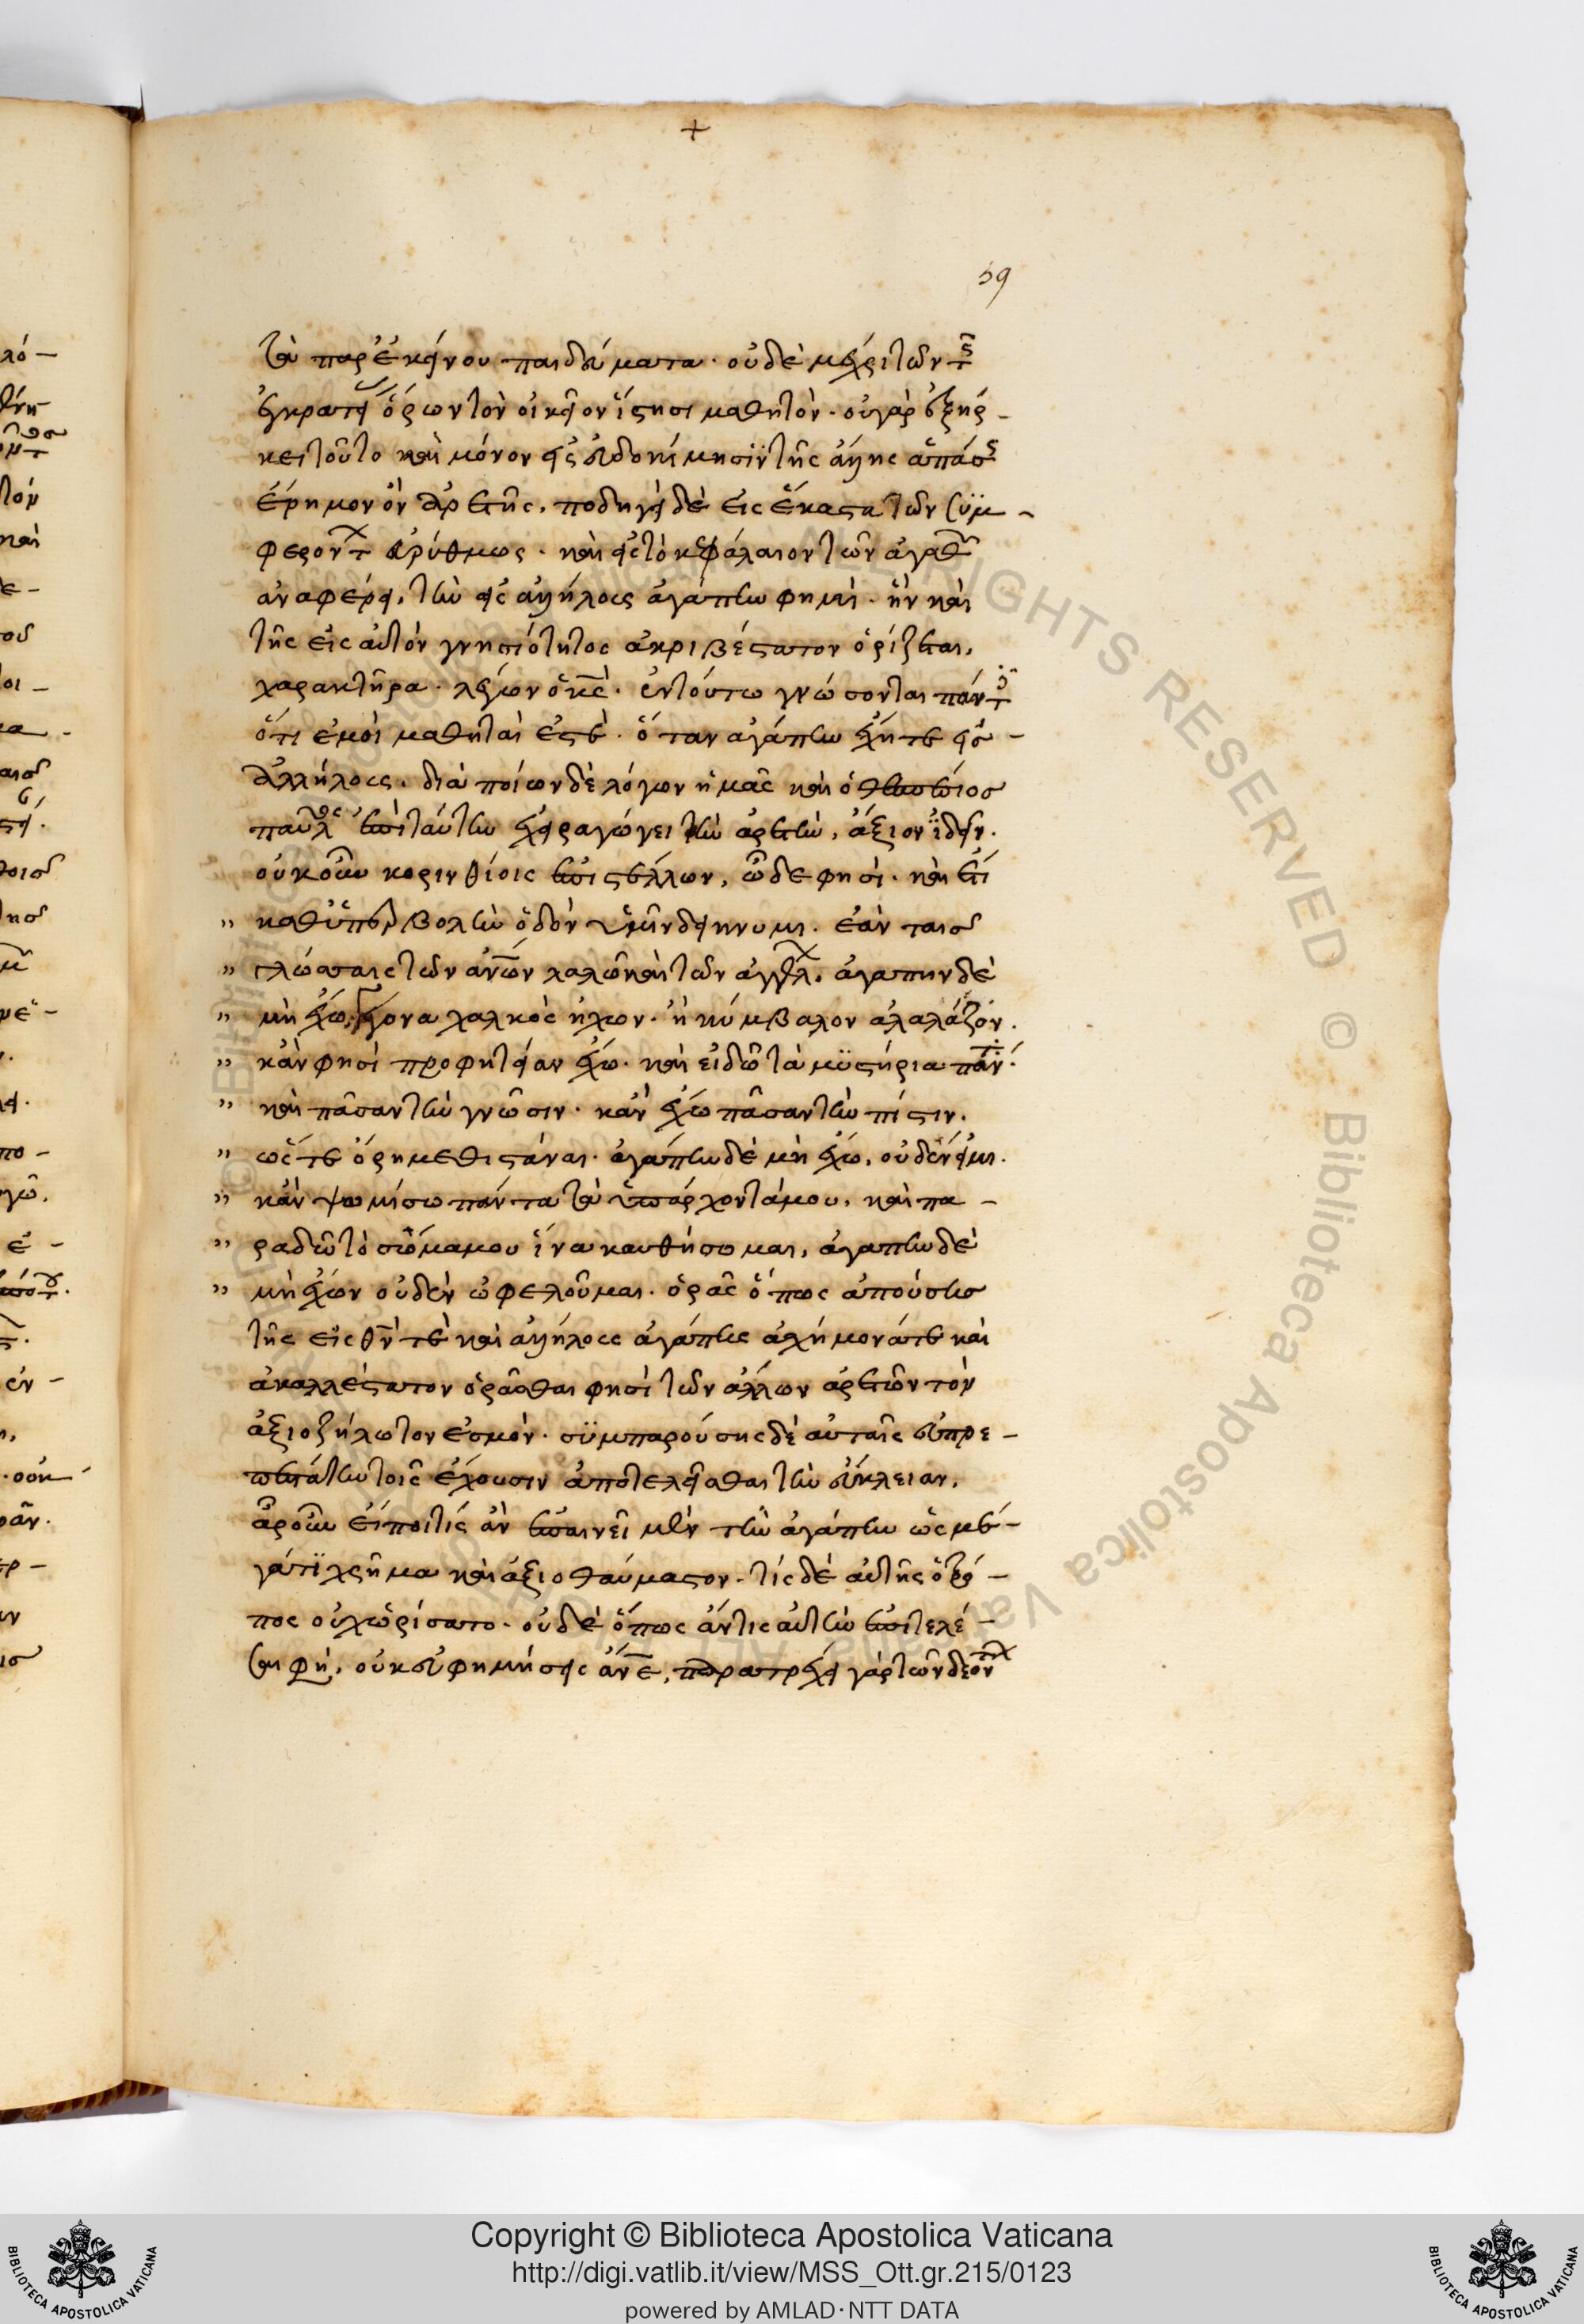 +
59
τὰ παρ' ἐκείνου παιδεύματα. οὐδὲ μέχρι τῶν τῆς
ἐγκρατείας ὅρων τὸν οἰκεῖον ἵστησι μαθητήν. οὐ γὰρ ἐξήρ-
κει τοῦτο καὶ μόνον εἰς εὐδοκίμησιν τῆς ἄλλης ἁπάσης
ἔρημον ὂν ἀρετῆς, ποδηγεῖ δὲ εἰς ἕκαστα τῶν συμ-
φερόντων εὐρύθμως. καὶ εἰς τὸ κεφάλαιον τῶν ἀγαθῶν
ἀναφέρει, τὴν εἰς ἀλλήλους ἀγάπην φημί. ἣν καὶ
τῆς εἰς αὐτὸν γνησιότητος ἀκριβέστατον ὁρίζεται,
χαρακτῆρα. λέγων ὁ κς. ἐν τούτω γνώσονται πάντες
ὅτι ἐμοὶ μαθηταὶ ἐστέ. ὅταν ἀγάπην ἔχητε ἐν
ἀλλήλοις. διὰ ποίων δὲ λόγων ἡμᾶς καὶ ὁ θεσπέσιος
παῦλος ἐπὶ ταύτην ἐχειραγώγει τὴν ἀρετήν, ἄξιον ἰδεῖν.
οὐκοῦν κορινθίοις ἐπιστέλλων, ὧδε φησί. καὶ ἔτι
" καθ' ὑπερβολὴν ὁδὸν ὑμῖν δείκνυμι. ἐὰν ταῖς
" γλώσσαις τῶν ἀνων λαλῶ καὶ τῶν ἀγγέλων, ἀγάπην δὲ
" μὴ ἔχω, γέγονα χαλκὸς ἠχων. ἢ κύμβαλον ἀλαλάζον.
" κἂν φησὶ προφητείαν ἔχω. καὶ εἰδῶ τὰ μυστήρια πάντα.
" καὶ πᾶσαν τὴν γνῶσιν. κἂν ἔχω πᾶσαν τὴν πίστιν.
" ὥστε ὄρη μεθιστάναι. ἀγάπην δὲ μὴ ἔχω, οὐδέν εἰμι.
" κἂν ψωμίσω πάντα τὰ ὑπάρχοντά μου, καὶ πα-
" ραδῶ τὸ σῶμα μου ἵνα καυθήσωμαι, ἀγάπην δὲ
" μὴ ἔχων οὐδὲν ὠφελοῦμαι. ὁρᾶς ὅπως ἀπούσης
τῆς εἰς θν τε καὶ ἀλλήλους ἀγάπης ἀσχήμονά τε καὶ
ἀκαλλέστατον ὁρᾶσθαι φησὶ τῶν ἄλλων ἀρετῶν τὸν
ἀξιοζήλωτον ἑσμόν. συμπαρούσης δὲ αὐταῖς εὐπρε-
πεστάτην τοῖς ἔχουσιν ἀποτελεῖσθαι τὴν εὔκλειαν.
ἆρ' οὖν εἴποι τίς ἂν ἐπαινεῖ μὲν τὴν ἀγάπην ὡς μέ-
γά τι χρῆμα καὶ ἀξιοθαύμαστον. τίς δὲ αὐτῆς ὁ τρό-
πος οὐχ ὡρίσατο. οὐδὲ ὅπως ἄν τις αὐτὴν ἐπιτελέ-
σαι φῄ, οὐκ εὐφημήσεις ἄνε, παρατρέχει γὰρ τῶν δεόντων